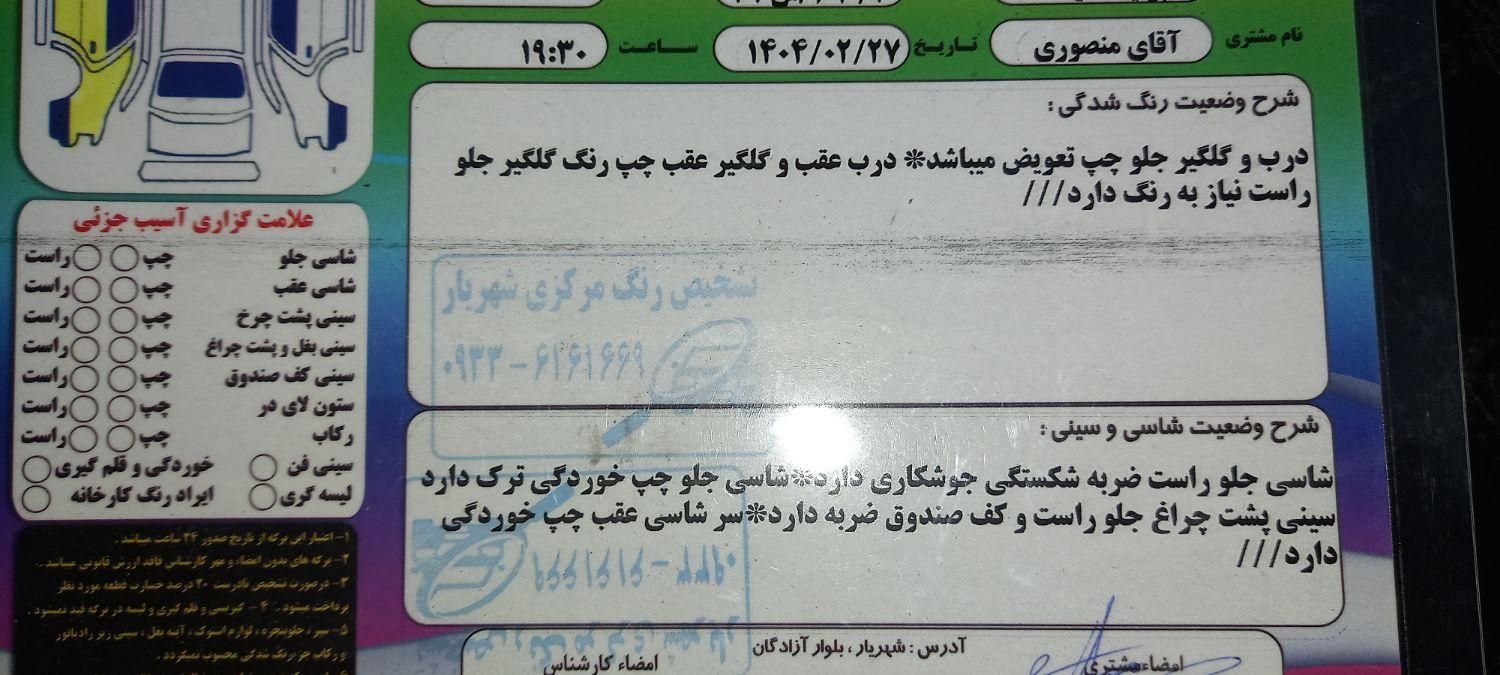 نام مشتری
آقای منصوری
تاریخ
۱۴۰۴/۰۲/۲۷
ساعت
۱۹:۳۰
شرح وضعیت رنگ شدگی :
درب و گلگیر جلو چپ تعویض میباشد* درب عقب و گلگیر عقب چپ رنگ گلگیر جلو
راست نیاز به رنگ دارد///
تشخیص رنگ مرکزی شهریار
۰۹۳۳ - ۶۱۶۱۶۶۹
شرح وضعیت شاسی و سینی :
شاسی جلو راست ضربه شکستگی جوشکاری دارد*شاسی جلو چپ خوردگی ترک دارد
سینی پشت چراغ جلو راست و کف صندوق ضربه دارد*سر شاسی عقب چپ خوردگی
دارد///
۰۹۳۳ - ۶۱۶۱۶۶۹
آدرس : شهریار ، بلوار آزادگان
امضاء مشتری
امضاء کارشناس
علامت گزاری آسیب جزئی
شاسی جلو چپ راست
شاسی عقب چپ راست
سینی پشت چرخ چپ راست
سینی بغل و پشت چراغ چپ راست
سینی کف صندوق چپ راست
ستون لای در چپ راست
رکاب چپ راست
سینی فن خوردگی و قلم گیری
لیسه گری ایراد رنگ کارخانه
۱- اعتبار این برگه از تاریخ صدور ۲۴ ساعت میباشد .
۲- برگه های بدون امضاء و مهر کارشناس فاقد ارزش قانونی میباشد .
۳- درصورت تشخیص نادرست ۲۰ درصد خسارت قطعه مورد نظر
پرداخت میشود . ۴- گیرسی و قلم گیری و لیسه در برگه قید نمیشود .
۵- سپر ، جلوپنجره ، لوازم استوک ، آینه بغل ، سینی زیر رادیاتور
و رکاب جز رنگ شدگی محسوب نمیگردد .